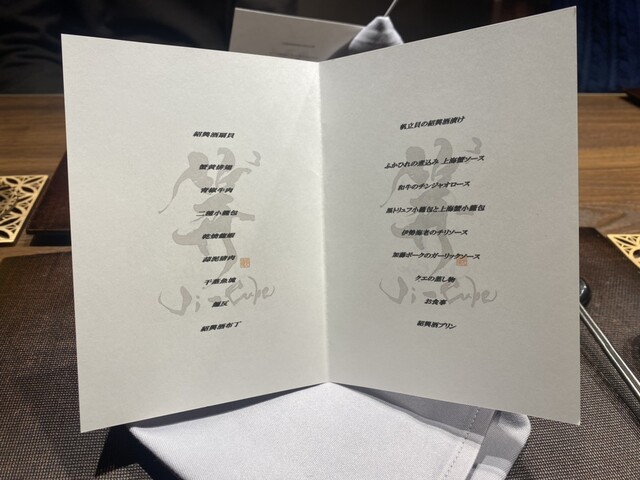 紹興酒扇貝
蟹黄排翅
青椒牛肉
二種小籠包
乾焼龍蝦
蒜泥猪肉
干蒸魚塊
麺反
紹興酒布丁
帆立貝の紹興酒漬け
ふかひれの煮込み 上海蟹ソース
和牛のチンジャオロース
黒トリュフ小籠包と上海蟹小籠包
伊勢海老のチリソース
加藤ポークのガーリックソース
クエの蒸し物
お食事
紹興酒プリン